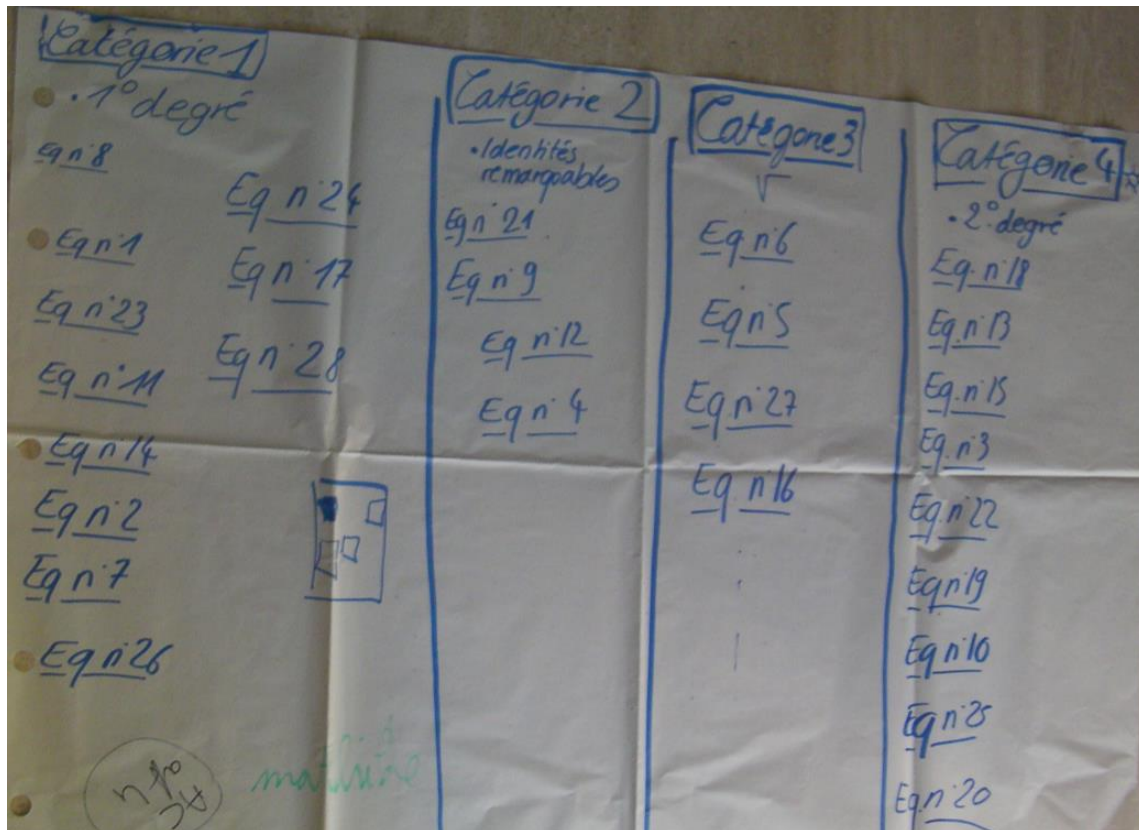 Catégorie 1
• 1° degré
Eq n°8
Eq n°1
Eq n°23
Eq n°11
Eq n°14
Eq n°2
Eq n°7
Eq n°26
Eq n°24
Eq n°17
Eq n°28
Catégorie 2
• Identités
remarquables
Eq n°21
Eq n°9
Eq n°12
Eq n°4
Catégorie 3
√
Eq n°6
Eq n°5
Eq n°27
Eq n°16
Catégorie 4
• 2° degré
Eq. n°18
Eq. n°13
Eq. n°15
Eq. n°3
Eq. n°22
Eq n°19
Eq n°10
Eq n°25
Eq. n°20